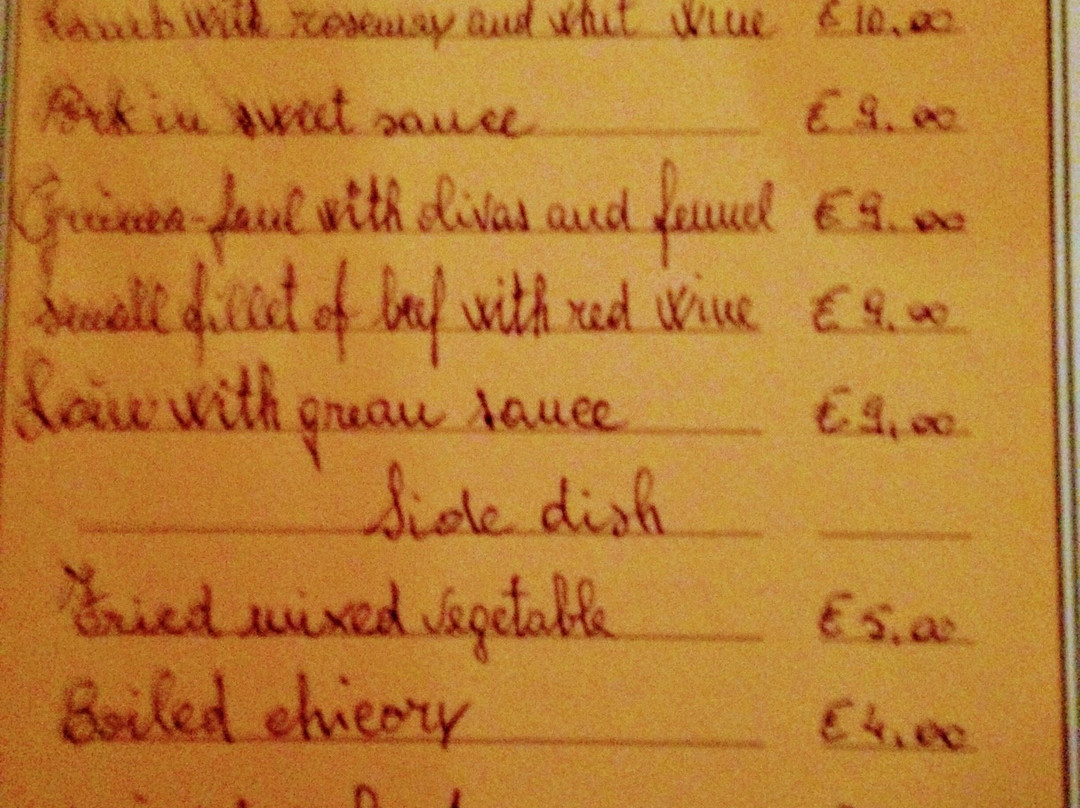 Lamb with rosemary and whit wine € 10.00
Pork in sweet sauce € 9.00
Guinea-faul with olivas and fennel € 9.00
small fillet of beef with red wine € 9.00
Loin with grean sauce € 9,00
Side dish
Fried mixed vegetable € 5.00
Boiled chicory € 4.00